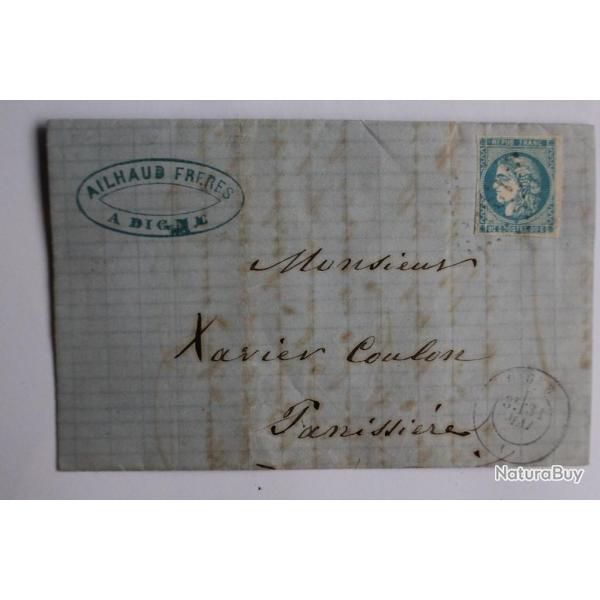 AILHAUD FRERES
A DIGNE
REPUB FRANC
Monsieur
Xavier Coulon
Panissière
MAI
NaturaBuy